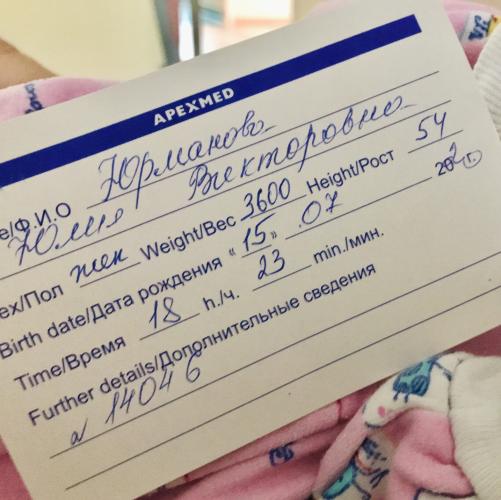 APEXMED
e/Ф.И.О Юрманова
Юлия Викторовна
ех/Пол жен Weight/Вес 3600 Height/Рост 54
Birth date/Дата рождения «15» .07 202 г.
Time/Время 18 h./ч. 23 min./мин.
Further details/Дополнительные сведения
14046